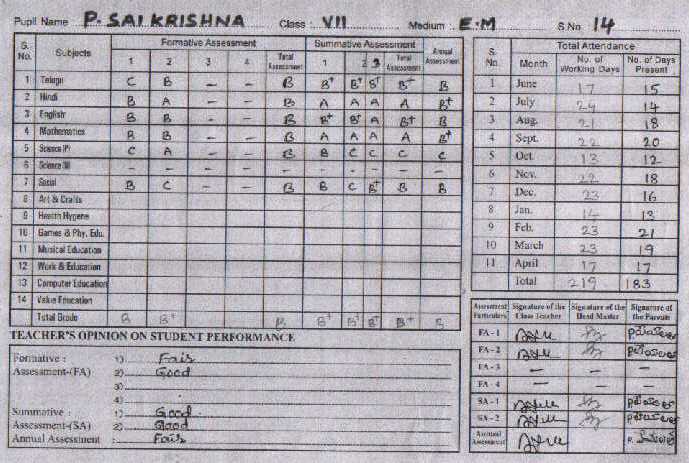 Pupil Name P. SAI KRISHNA Class : VII Medium : E.M S No 14
S. No. Subjects Formative Assessment Summative Assessment Annual Assessment
1 2 3 4 Total Assessment 1 2 3 Total Assessment
1 Telugu C B – – B B+ B+ B+ B+ B
2 Hindi B A – – B A A A A B+
3 English B B – – B B+ B+ A B+ B
4 Mathematics B B – – B A A A A B+
5 Science (P) C A – – B B C C C C
6 Science (B) – – – – – – – – – –
7 Social B C – – B B C B+ B B
8 Art & Crafts
9 Health Hygene
10 Games & Phy. Edu.
11 Musical Education
12 Work & Education
13 Computer Education
14 Value Education
Total Grade B B+ B B+ B+ B+ B+ B
TEACHER'S OPINION ON STUDENT PERFORMANCE
Formative : 1) Fair
Assessment-(FA) 2) Good
3)
4)
Summative : 1) Good
Assessment-(SA) 2) Good
Annual Assessment : Fair
S. No. Month Total Attendance
No. of Working Days No. of Days Present
1 June 17 15
2 July 24 14
3 Aug. 21 18
4 Sept. 22 20
5 Oct. 13 12
6 Nov. 22 18
7 Dec. 23 16
8 Jan. 14 13
9 Feb. 23 21
10 March 23 19
11 April 17 17
Total 219 183
Assessment Particulers Signature of the Class Teacher Signature of the Head Master Signature of the Parents
FA - 1
FA - 2
FA - 3 – – –
FA - 4 – – –
SA - 1
SA - 2
Annual Assessment